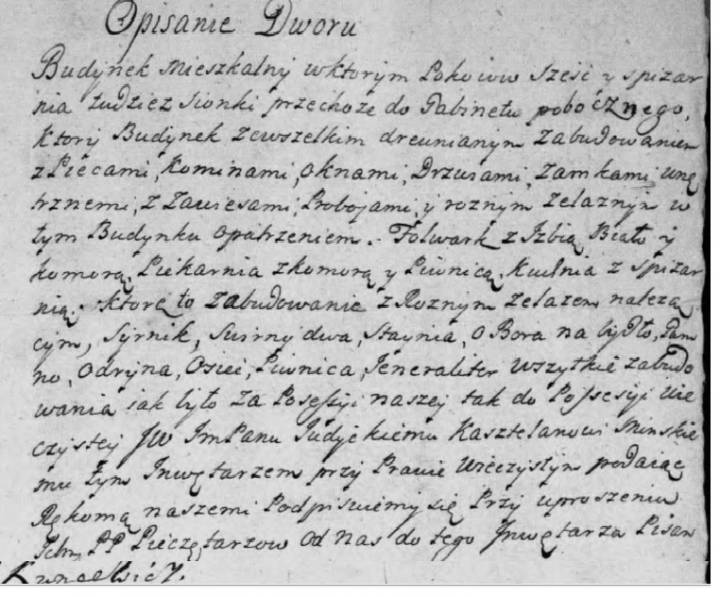 Opisanie Dworu
Budynek Mieszkalny wktorym Pokoiow sześć y spizar
nia tudziez sionki przechoze do Gabinetu pobocznego,
ktory Budynek zewszelkim drewnianym zabudowaniem
z Piecami, Kominami, oknami, Drzwiami, Zamkami wnę
trznemi, z Zawiesami, Probojami, y roznym zelaznym w
tym Budynku opatrzeniem. Folwark z Izbią Białą y
komorą, Piekarnia zkomorą y Piwnicą, Kuchnia z Spizar
nią. ktore to zabudowanie z Roznym zelazem nalezą
cym, Syrnik, Swirny dwa, Staynia, oBora na bydło, Gum
no, Odryna, Osieć, Piwnica, Jeneraliter wszytkie zabudo
wania iak było za Posessyi naszey tak do Possesyi wie
czystey JW ImPanu Judyckiemu Kasztelanowi Minskie
mu tym Inwętarzem przy Prawie wieczystym podaiąc
Rękomą naszemi Podpisuiemy się Przy uproszeniu
Ichm PP Pieczętarzow od nas do tego Inwętarza Pisan